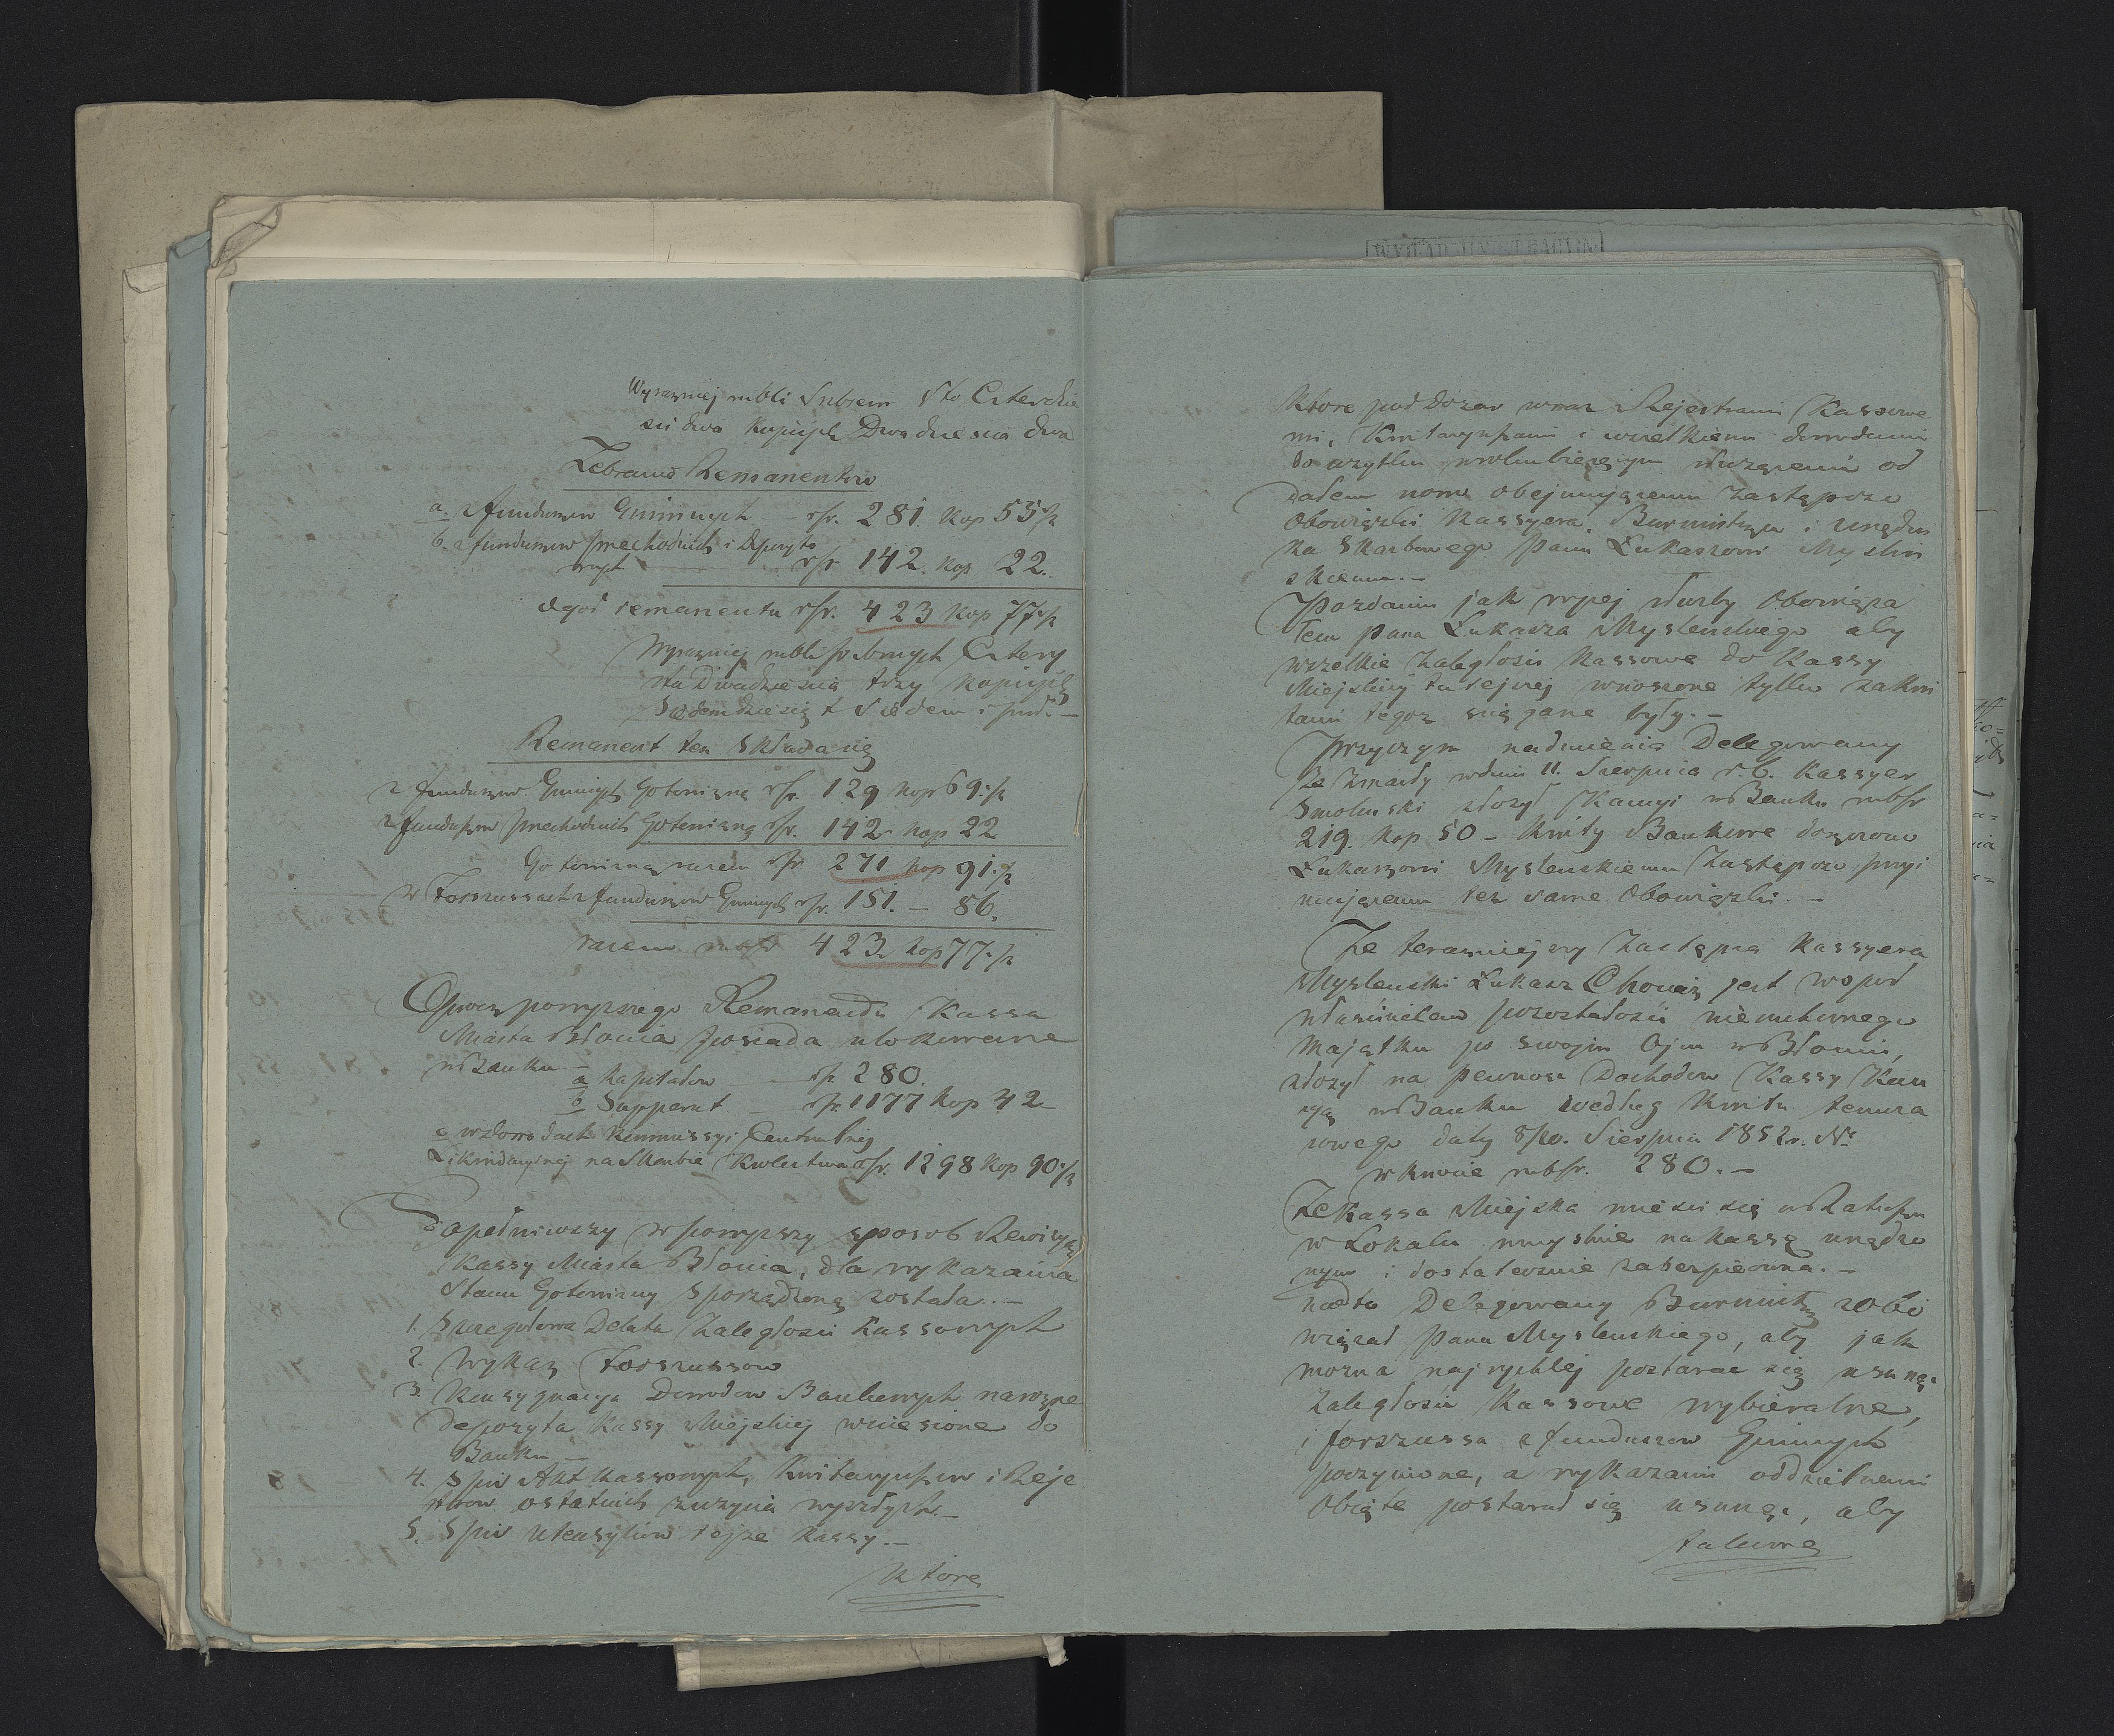 Wyrazniej rubli Srebrem Sto Czterdzie
sci dwa kopijek Dwadziescia dwa
Zebranie Remanentow
a. z funduszow Gminnych – rsr. 281 kop 55½
b. z funduszow przechodnich i depozyto
wych rsr 142. kop 22.
Ogoł remanentu rsr. 423 kop 77½
Wyrazniej rubli srebrnych Cztery
sta Dwadziescia trzy kopijek
Siedemdziesiąt siedem i puł. –
Remanent ten składa się
z funduszow Gminnych Gotowizną rsr. 129 kop 69½
z funduszow przechodnich Gotowizną rsr. 142 kop 22
Gotowizną razem rsr 271 kop 91½
w Forszussach z funduszów Gminnych rsr. 151. – 86.
razem rubsr 423 kop 77½
Oprocz powyzszego Remanentu Kassa
Miasta Błonia posiada ulokowane
w Banku –
a Kapitałow rsr 280.
b Supperat – rsr. 1177 kop 42 –
c w dowodach Kommissyi Centralnej
Likwidacyjnej na Skarbie Krolestwa rsr. 1298 kop 90½
Dopełniwszy w powyzszy sposob Rewizyą
Kassy Miasta Błonia, dla wykazania
Stanu Gotowizny sporządzoną została. –
1. Szczegołowa Delata Zaległosci Kassowych
2. Wykaz Forszussow
3. Konsygnacya Dowodow Bankowych na rozne
depozyta Kassy Miejskiej wniesione do
Banku –
4. Spis Akt Kassowych, Kwitaryuszow i Reje
strow ostatnich z uzycia wyszłych. –
5. Spis Utensyliow tejze Kassy. –
które
Ktore pod dozor wraz z Rejestrami Kassowe
mi, Kwitaryuszami i wszelkiemi dowodami
do uzytku w roku bieżącym służącemi od
dałem nowo obejmującemu Zastępcze
Obowiązki Kassyera, Burmistrza i urzędni
ka Skarbowego Panu Łukaszowi Myslin
skiemu. –
Po zdaniu jak wyzej słuzby Obowiąza
łem Pana Łukasza Myslenskiego aby
wszelkie Zaległosci Kassowe do Kassy
Miejskiej tutejszej wnoszone tylko za kwi
tami tegoz sciągane były. –
Przyczym nadmienia Delegowany
że zmarły w dniu 11. Sierpnia r. b. Kassyer
Smolenski złozył Kaucyi w Banku rubsr
219. kop 50 – Kwity Bankowe doręczono
Łukaszowi Myslenskiemu Zastępczo przyi
mującemu tez same Obowiązki. –
Ze terazniejszy Zastępca Kassyera
Myslenski Łukasz Chociaz jest wspoł
własnicielem pozostałosci nieruchomego
Majątku po swojim Ojcu w Błoniu,
złozył na pewnosc Dochodow Kassy Kau
cyą w Banku według Kwitu tymcza
sowego daty 8/20. Sierpnia 1852 r. No
w kwocie rubsr. 280. –
Ze Kassa Miejska miesci się w Ratuszu
w Lokalu umyslnie na kassę urządzo
nym i dostatecznie zabezpieczona. –
nadto Delegowany Burmistrz zobo
wiązał Pana Myslenskiego, aby jak
mozna najrychlej postarac się usunąc
Zaległosci Kassowe wybieralne,
i forszussa z funduszow Gminnych
poczynione, a wykazami oddzielnemi
objęte postarał się usunąc, aby
takowe